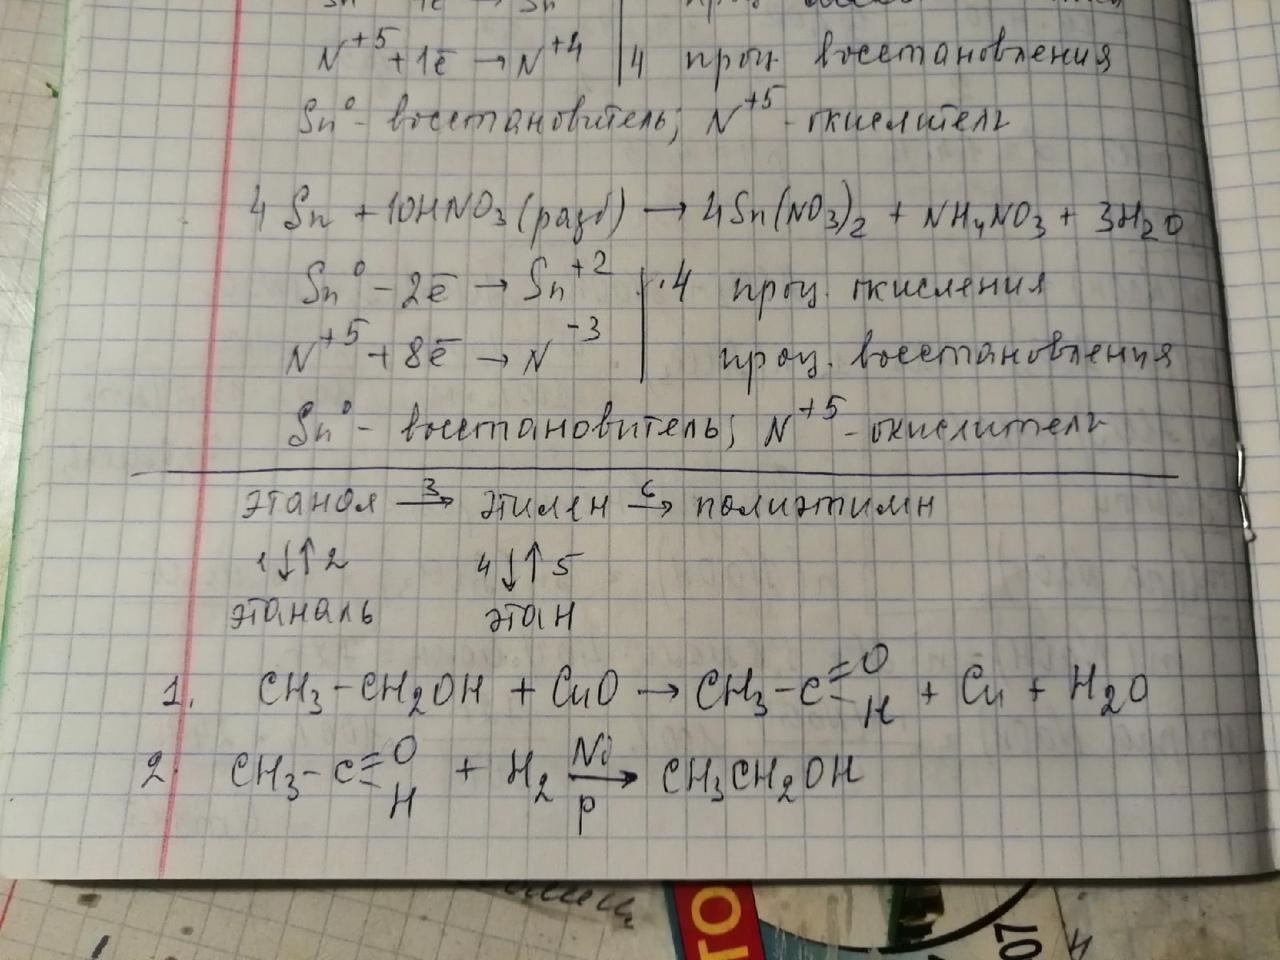 N⁺⁵ + 1ē → N⁺⁴ | 4 проц. восстановления
Sn⁰ - восстановитель; N⁺⁵ - окислитель
4Sn + 10HNO₃ (разб) → 4Sn(NO₃)₂ + NH₄NO₃ + 3H₂O
Sn⁰ - 2ē → Sn⁺² | ·4 проц. окисления
N⁺⁵ + 8ē → N⁻³ | проц. восстановления
Sn⁰ - восстановитель; N⁺⁵ - окислитель
этанол 3→ этилен 6→ полиэтилен
1↓↑2 4↓↑5
этаналь этан
1. CH₃-CH₂OH + CuO → CH₃-C=O H + Cu + H₂O
2. CH₃-C=O H + H₂ Ni→p CH₃CH₂OH
ТО
07